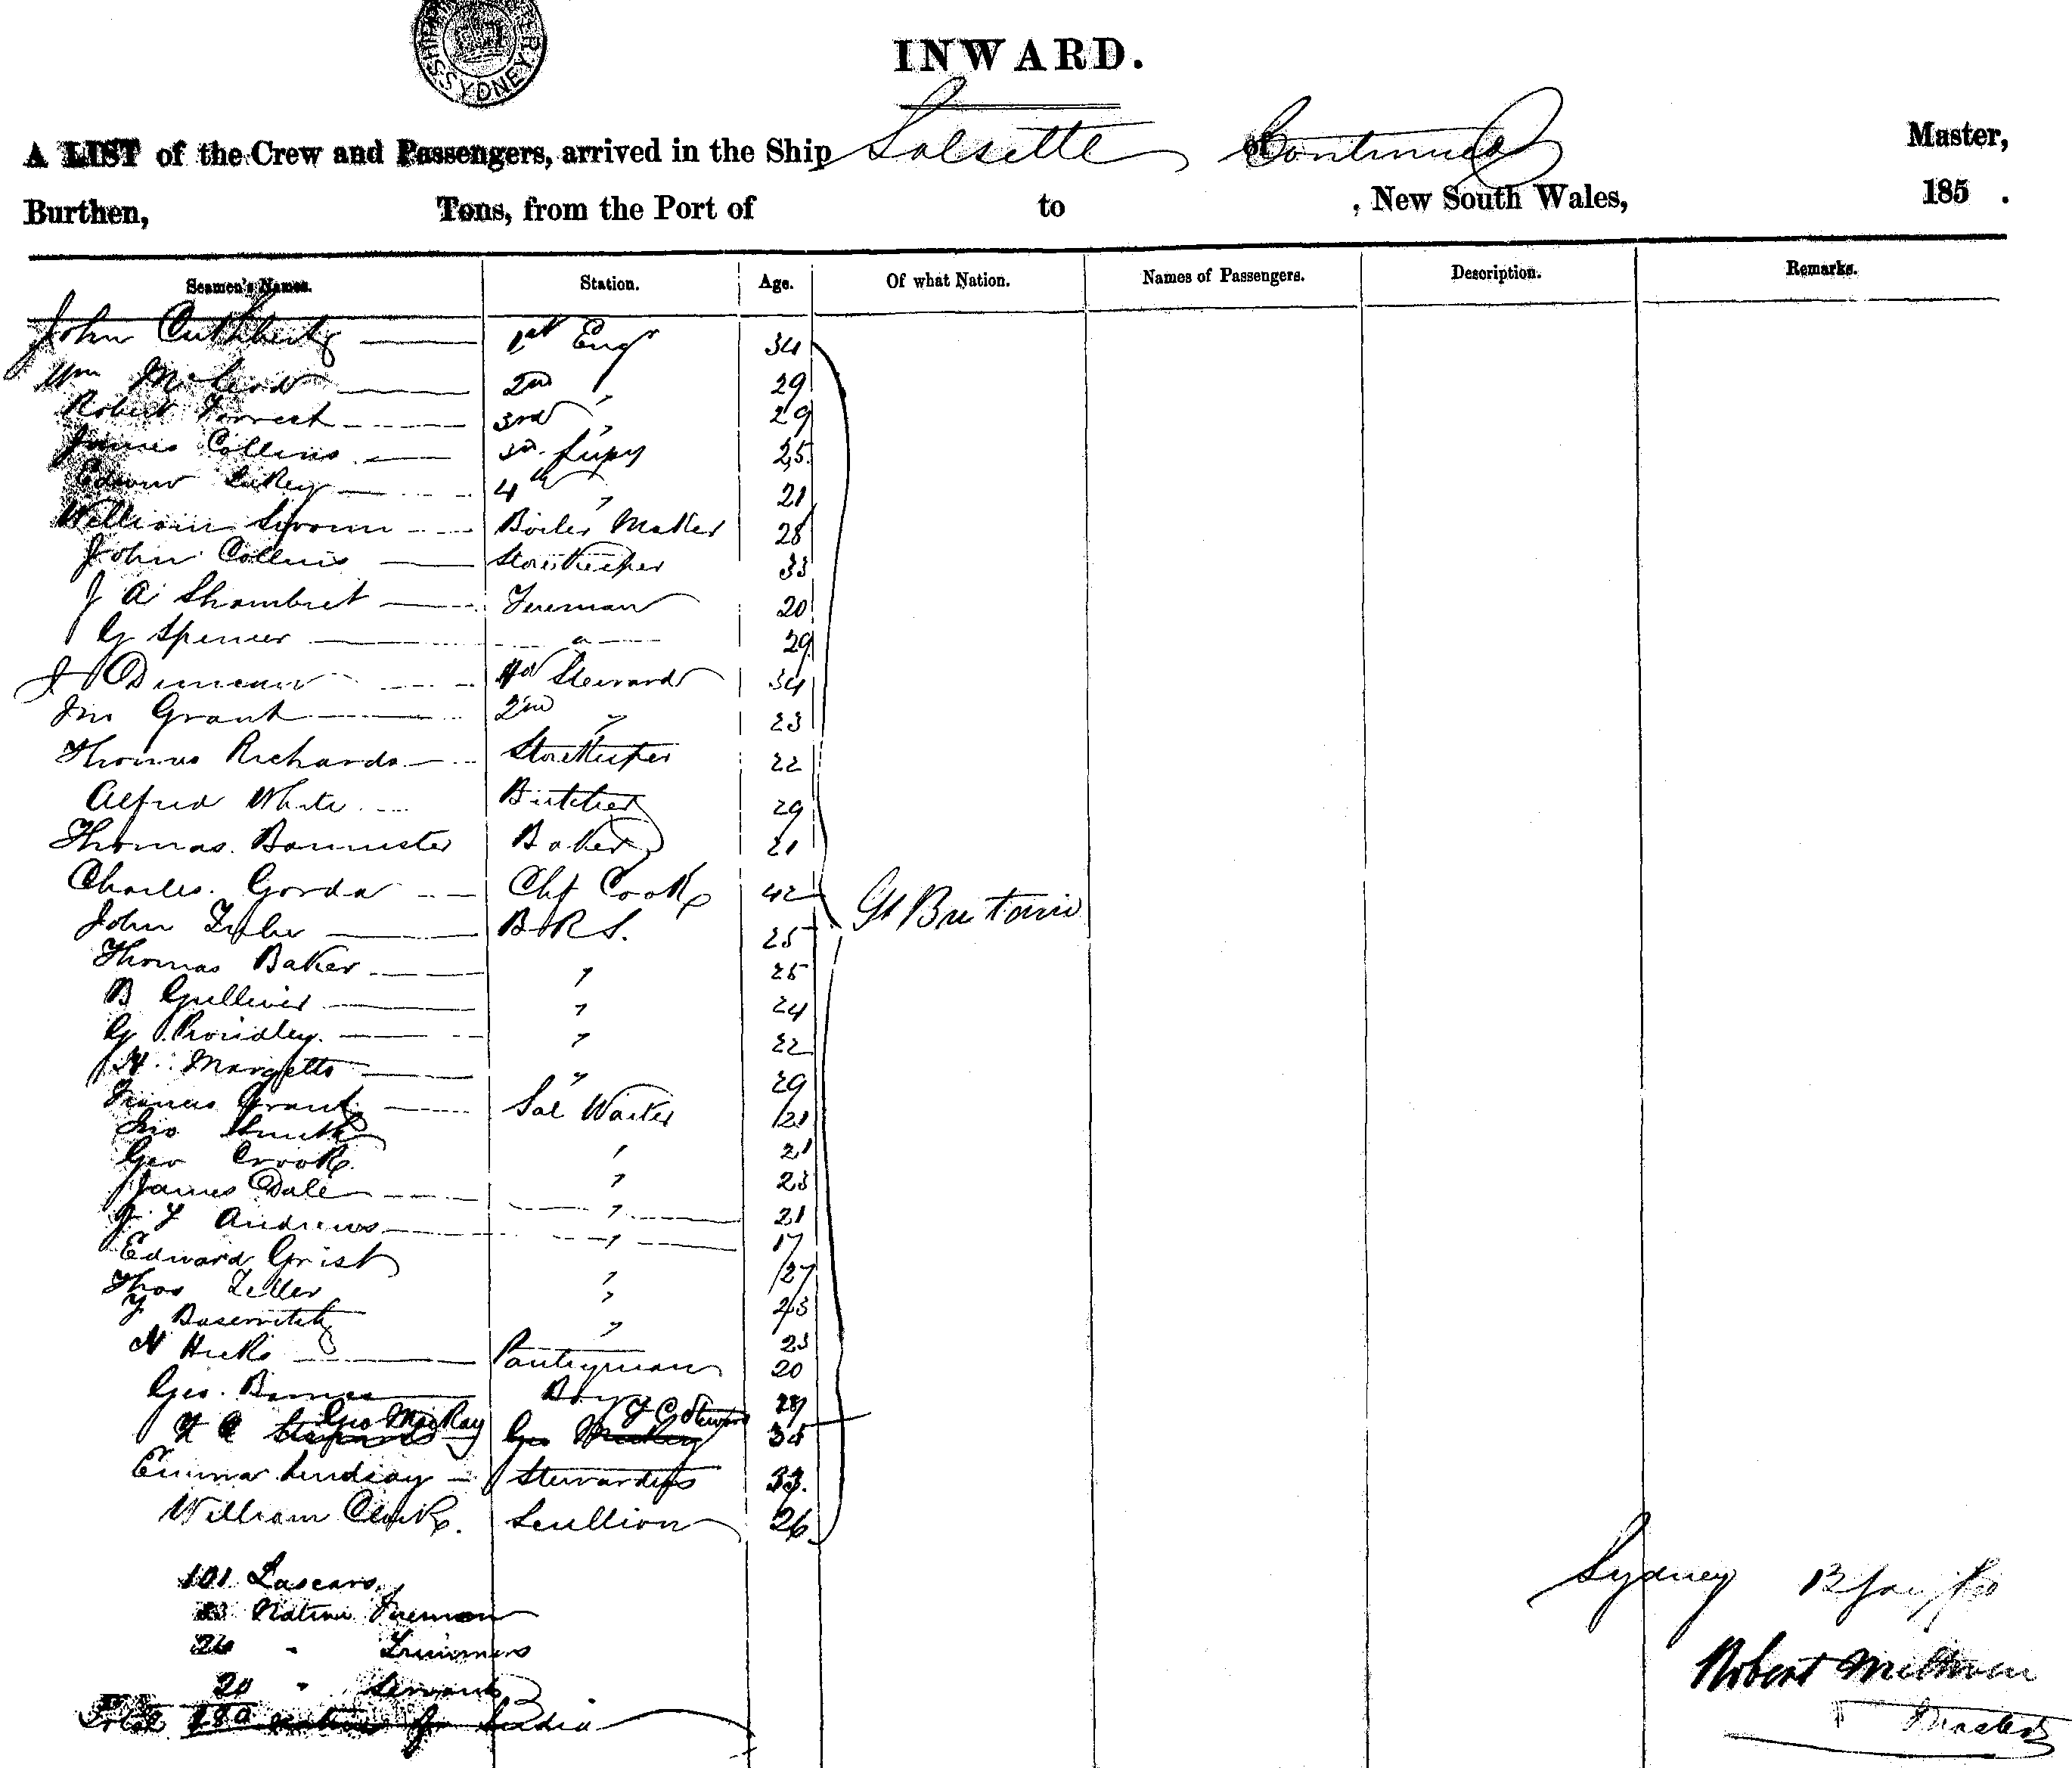 SYDNEY
INWARD.
A LIST of the Crew and Passengers, arrived in the Ship Salsette of Continued Master,
Burthen, Tons, from the Port of to , New South Wales, 185 .
Seamen's Names. Station. Age. Of what Nation. Names of Passengers. Description. Remarks.
John 1st Engr 34
Wm McLeod 2nd " 29
Robert Forrest 3rd " 29
James Collins 3rd Supy 25
4th " 21
William Boiler Maker 28
John Collins Storekeeper 33
J A Shambret Fireman 20
G Spencer " 29
J Duncan Hd Steward 34
Jno Grant 2nd " 23
Thomas Richards Storekeeper 22
Alfred White Butcher 29
Thomas Bannister Baker 21
Charles Gorda Chf Cook 42
John B R S. 25 Gt Britain
Thomas Baker " 25
B Gulliver " 24
G " 22
H Margetts " 29
Francis Grant Sal Waiter 21
Jno Smith " 21
Geo Crook " 23
James Dale " 21
J F Andrews " 17
Edward Grist " 27
Thos " 23
" 23
N Hicks Pantryman 20
Geo. Boy
Geo MacKay Steward 35
Emma Lindsay Stewardess 33
William Clark Scullion 26
101 Lascars
Native Firemen
26 " Trimmers
20 " Servants
Total 180 India
Sydney 13 Jany
Robert Methven
Master